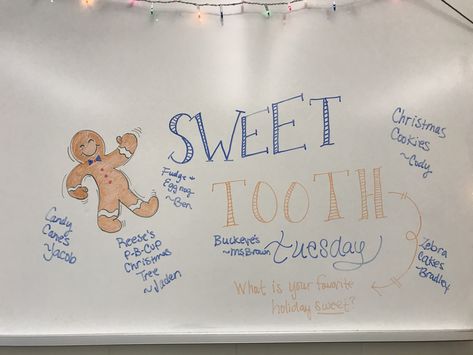 SWEET
TOOTH
Tuesday
What is your favorite
holiday sweet?
Christmas
Cookies
~Cody
Fudge &
Egg nog
~Ben
Candy
Canes
~Jacob
Reese's
P-B-Cup
Christmas
Tree
~Jaden
Buckeye's
~Ms Brown
Zebra
Cakes
~Bradley